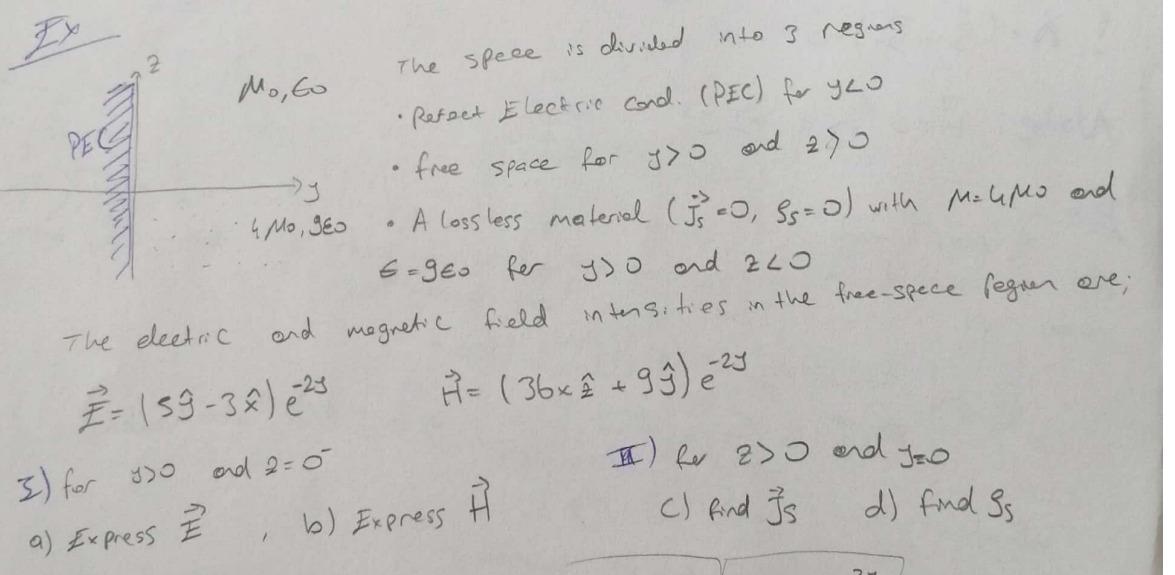 Ex
z
PEC
y
μ₀, ε₀
4μ₀, 9ε₀
The spece is divided into 3 regions
• Perfect Electric cond. (PEC) for y<0
• free space for y>0 and z>0
• A lossless material (J⃗s=0, ρs=0) with μ=4μ₀ and
ε=9ε₀ for y>0 and z<0
The electric and magnetic field intensities in the free-spece region are;
E⃗ = (5ŷ - 3x̂) e^{-2y}
H⃗ = (36x ẑ + 9ŷ) e^{-2y}
I) for y>0 and z=0⁻
a) Express E⃗ , b) Express H⃗
II) for z>0 and y=0
c) find J⃗s d) find ρs